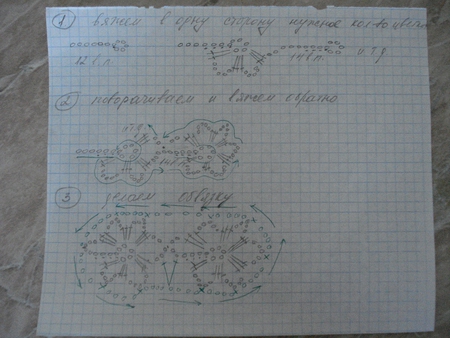 1 вяжем в одну сторону нужное кол-во цвет
12 в.п. 14 в.п. и.т.д.
2 поворачиваем и вяжем обратно
и.т.д.
14 в.п.
3 делаем обвязку